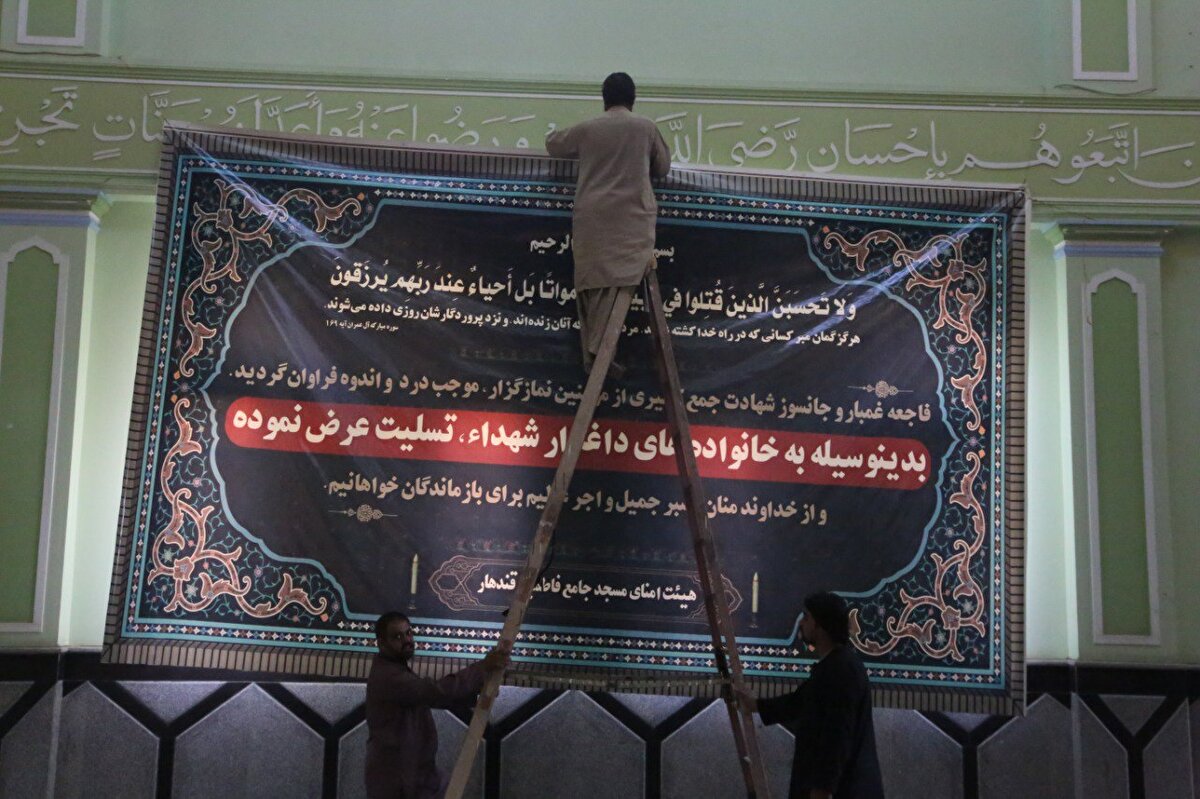 اتَّبَعُوهُم بِإِحْسَانٍ رَضِيَ اللَّهُ وَرَضُوا عَنْهُ وَأَعَدَّ لَهُمْ جَنَّاتٍ تَجْرِي
بسم الرحیم
ولا تَحسَبَنَّ الَّذينَ قُتِلوا في أَمواتًا بَل أَحياءٌ عِندَ رَبِّهِم يُرزَقونَ
هرگز گمان مبر کسانی که در راه خدا کشته آنان زنده‌اند، و نزد پروردگارشان روزی داده می‌شوند.
سوره مبارکه آل عمران آیه ۱۶۹
فاجعه غمبار و جانسوز شهادت جمع از نمازگزار، موجب درد و اندوه فراوان گردید.
بدینوسیله به خانواده‌های شهداء، تسلیت عرض نموده
و از خداوند منان جمیل و اجر برای بازماندگان خواهانیم.
هیئت امنای مسجد جامع قندهار